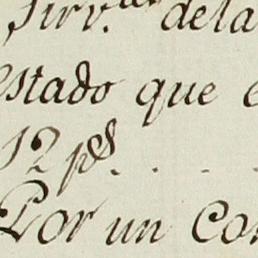 Sirv.tes dela
estado que e
12 p.s . . .
Por un Con